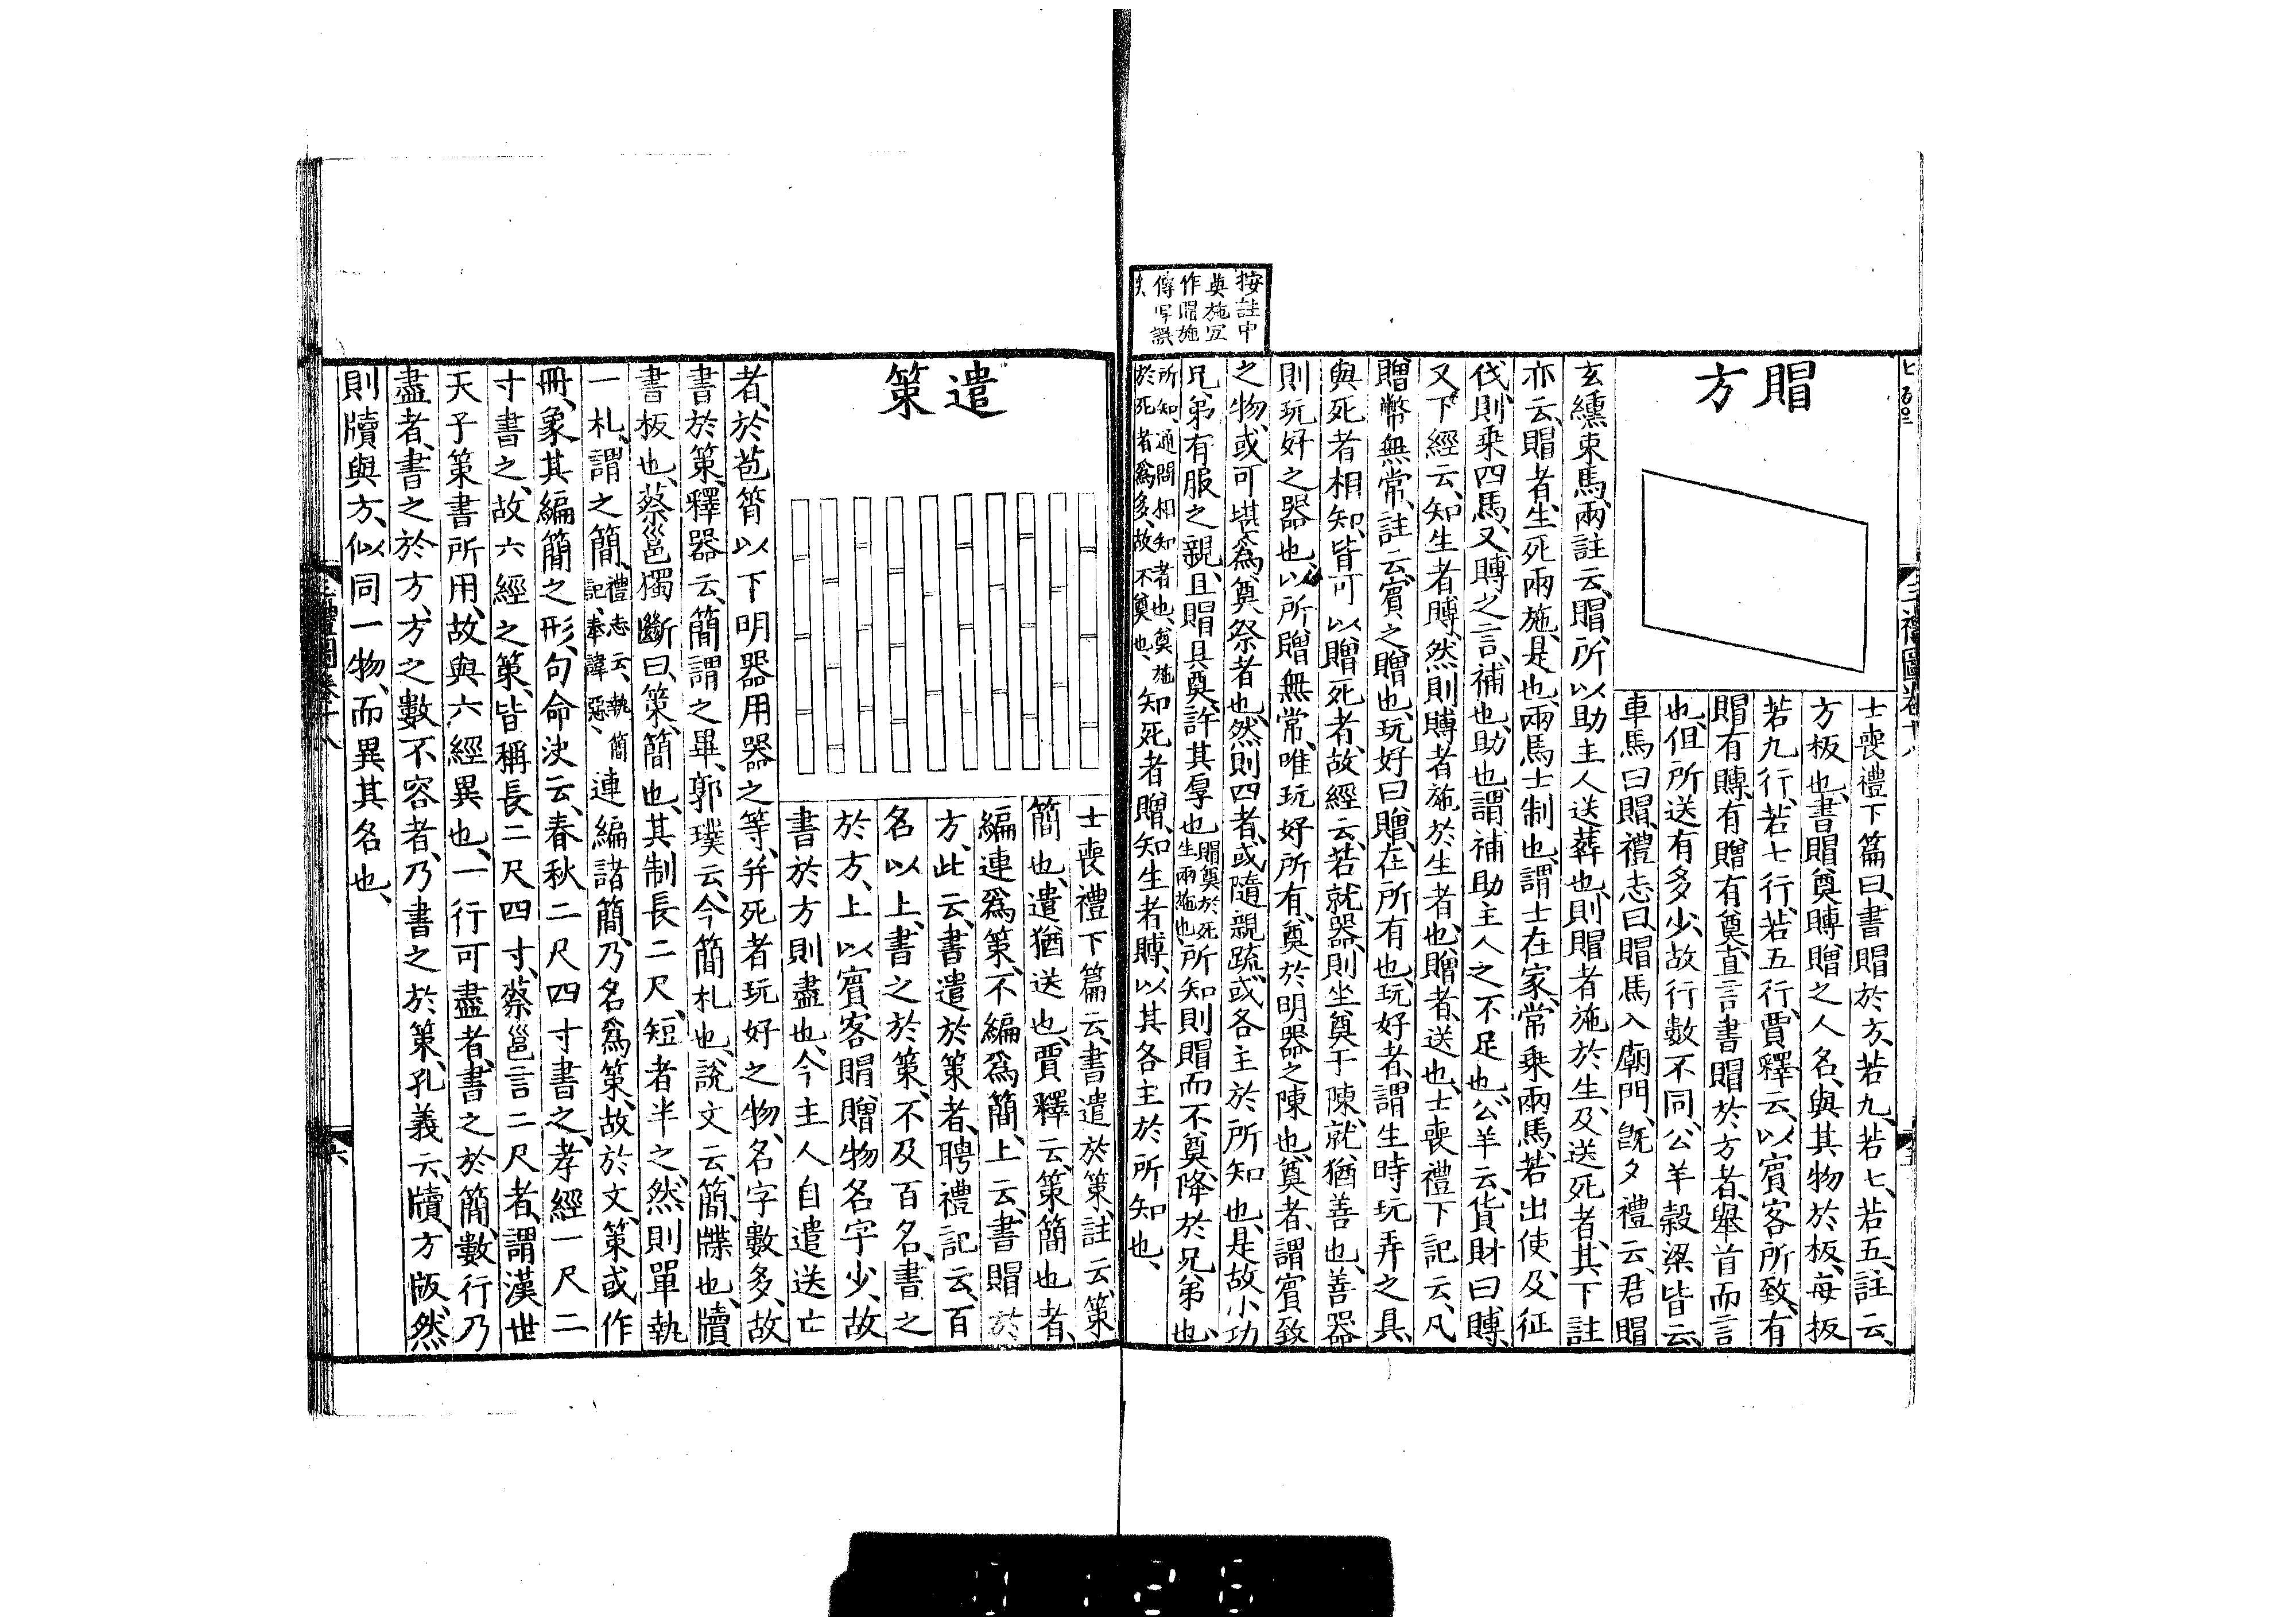 賵方
士喪禮下篇曰、書賵於方、若九、若七、若五、註云、
方板也、書賵奠賻贈之人名、與其物於板、每板
若九行、若七行、若五行、賈釋云、以賓客所致、有
賵有賻、有贈有奠、直言書賵於方者、舉首而言
也、但所送有多少、故行數不同、公羊穀梁皆云、
車馬曰賵、禮志曰、賵馬入廟門、旣夕禮云、君賵
玄纁束馬兩、註云、賵所以助主人送葬也、則賵者施於生及送死者、其下註
亦云、賵者、生死兩施、是也、兩馬士制也、謂士在家、常乗兩馬、若出使及征
伐、則乗四馬、又賻之言、補也、助也、謂補助主人之不足也、公羊云、貨財曰賻、
又下經云、知生者賻、然則賻者施於生者也、贈者、送也、士喪禮下記云、凡
贈幣無常、註云、賓之贈也、玩好曰贈、在所有也、玩好者、謂生時玩弄之具、
與死者相知、皆可以贈死者、故經云、若就器、則坐奠于陳、就猶善也、善器
則玩好之器也、以所贈無常、唯玩好所有、奠於明器之陳也、奠者、謂賓致
之物、或可堪爲奠祭者也、然則四者、或隨親疏、或各主於所知也、是故小功
兄弟有服之親、且賵具奠、許其厚也、賵奠於死生兩施也、所知則賵而不奠、降於兄弟也、
所知、通問相知者也、奠施於死者爲多、故不奠也、知死者贈、知生者賻、以其各主於所知也、
按註中
奠施宜
作賵施
傳写誤
三禮圖卷十八
五
遣策
士喪禮下篇云、書遣於策、註云、策
簡也、遣猶送也、賈釋云、策簡也者、
編連爲策、不編爲簡、上云、書賵於
方、此云、書遣於策者、聘禮記云、百
名以上、書之於策、不及百名、書之
於方、上以賓客賵贈物名字少、故
書於方則盡也、今主人自遣送亡
者、於苞筲以下明器用器之等、并死者玩好之物、名字數多、故
書於策、釋器云、簡謂之畢、郭璞云、今簡札也、說文云、簡、牒也、牘
書板也、蔡邕獨斷曰、策、簡也、其制長二尺、短者半之、然則單執
一札、謂之簡、禮志云、執簡記、奉諱惡、連編諸簡、乃名爲策、故於文、策或作
冊、象其編簡之形、句命決云、春秋二尺四寸書之、孝經一尺二
寸書之、故六經之策、皆稱長二尺四寸、蔡邕言二尺者、謂漢世
天子策書所用、故與六經異也、一行可盡者、書之於簡、數行乃
盡者、書之於方、方之數不容者、乃書之於策、孔義云、牘、方版、然
則牘與方、似同一物、而異其名也、
三禮圖卷十八
六